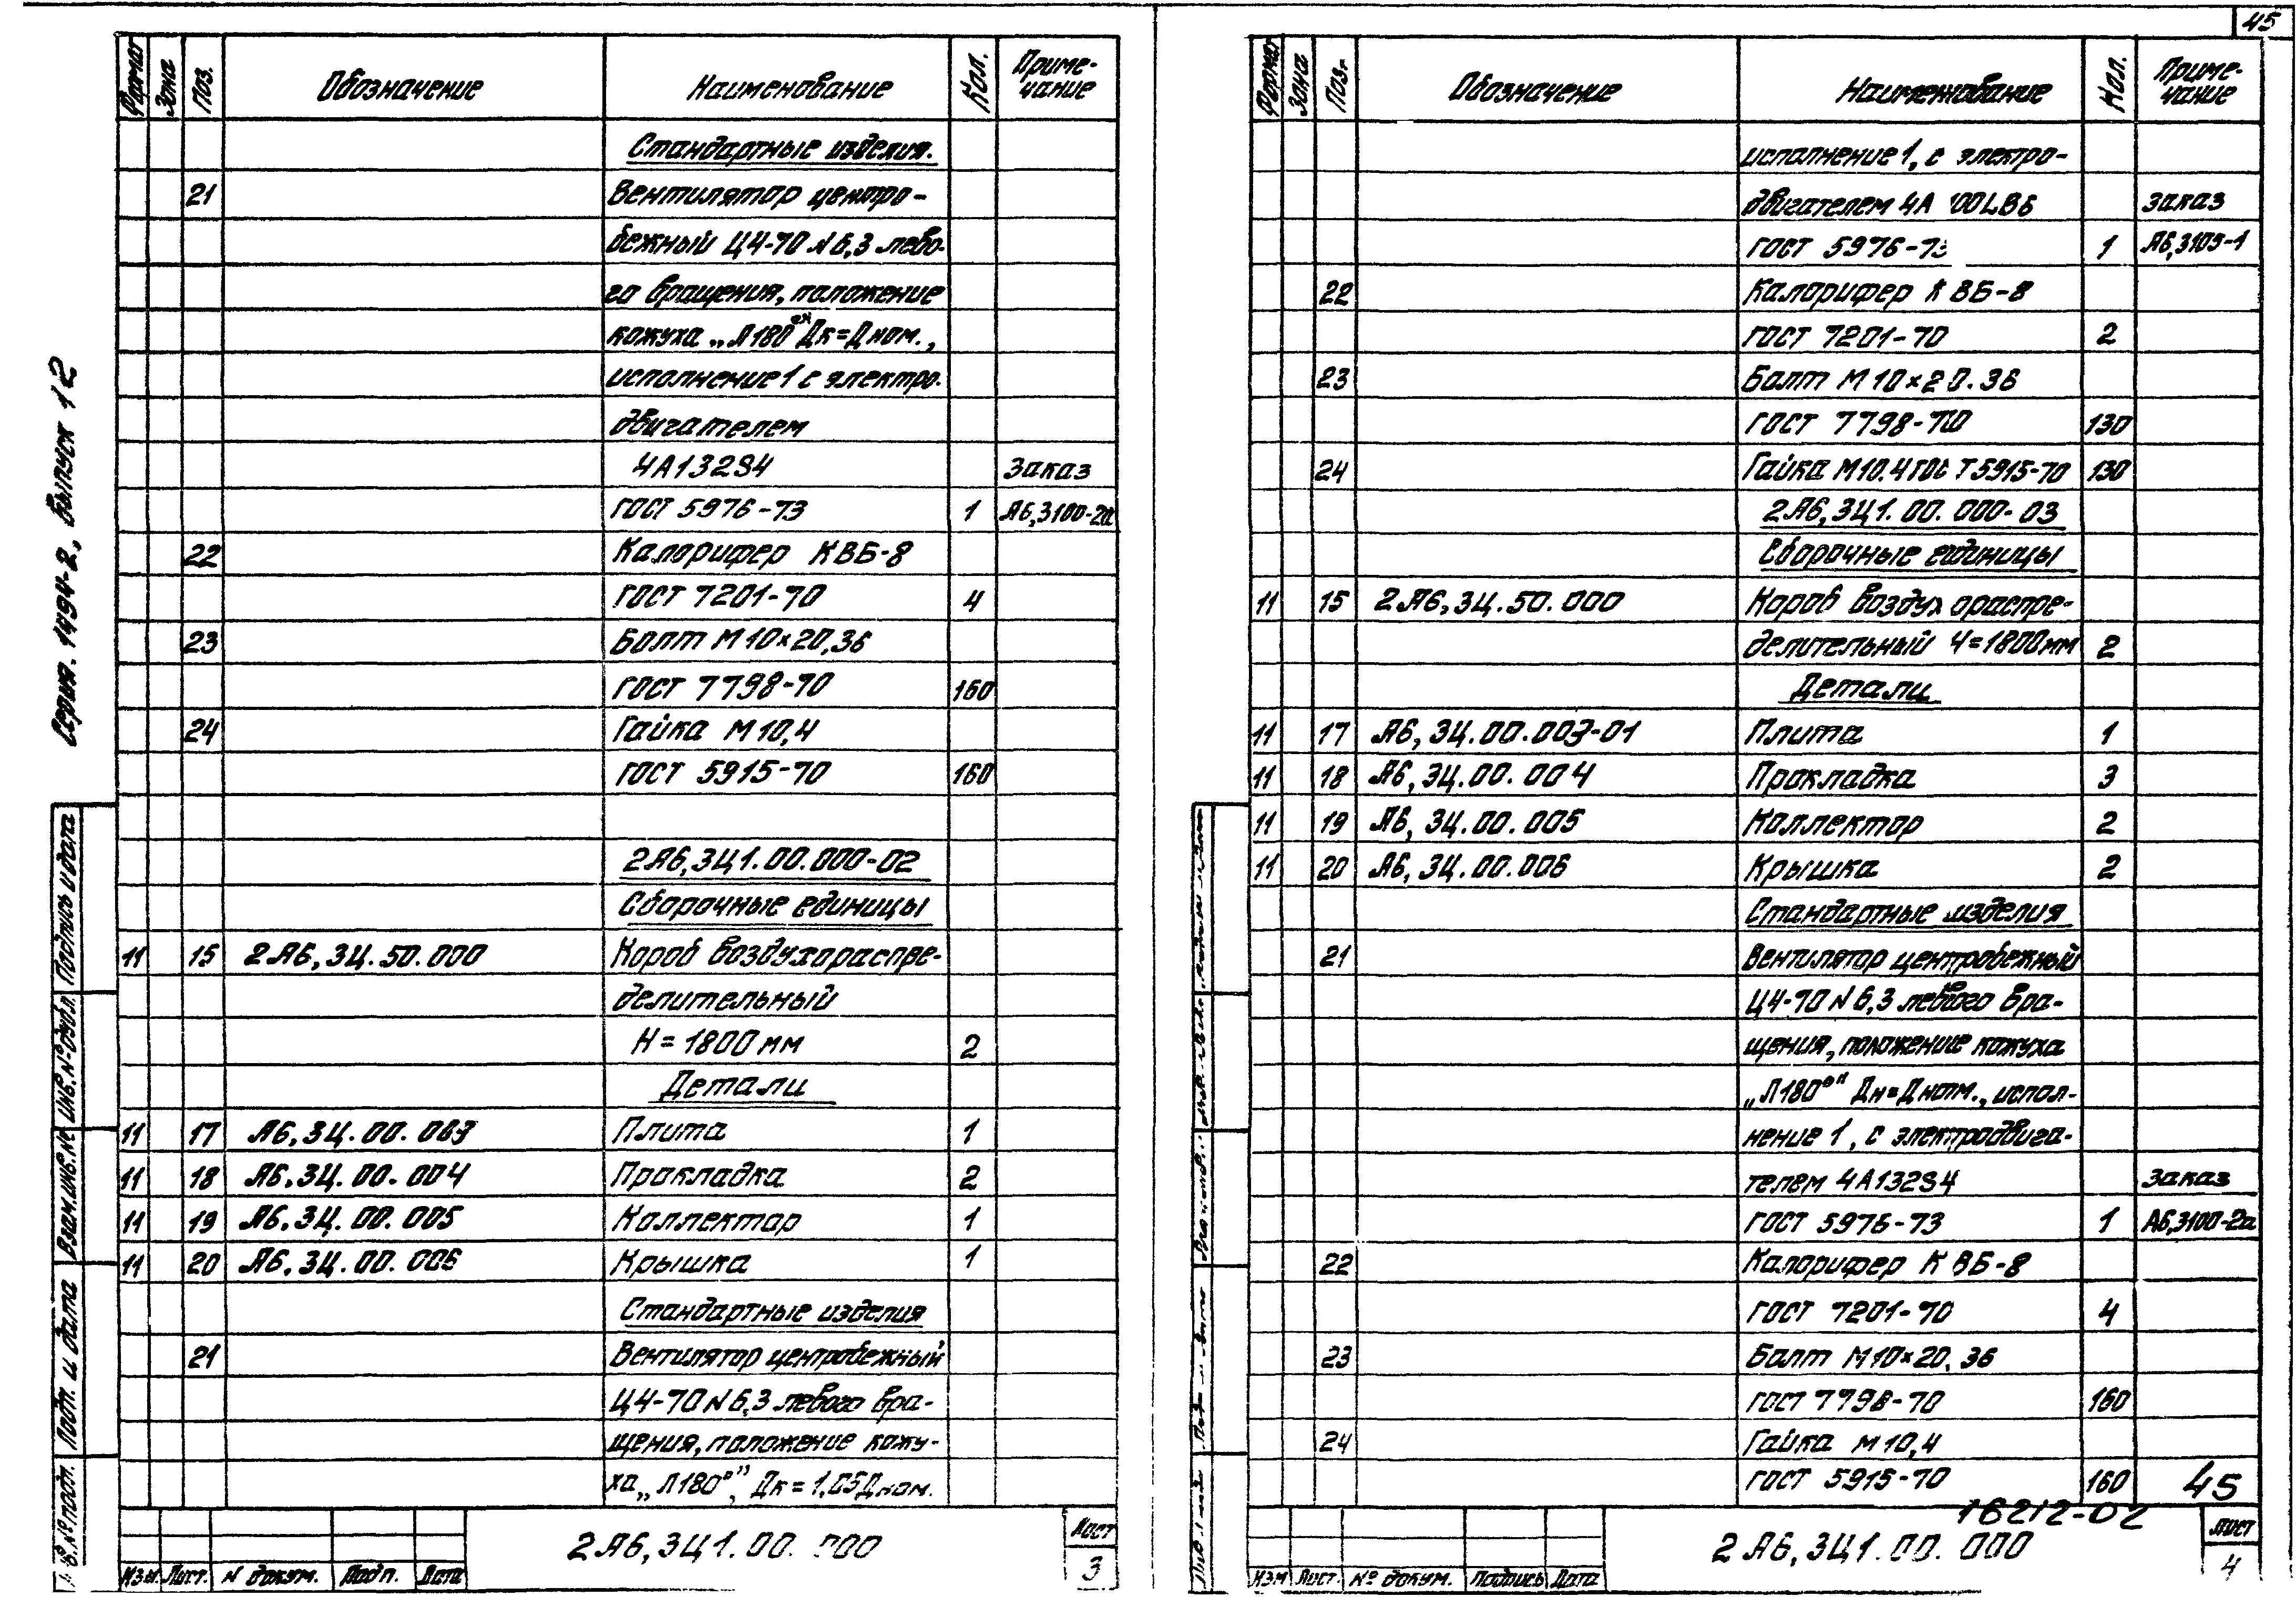 45
Серия. 1494-2, Выпуск 12
Формат Зона Поз. Обозначение Наименование Кол. Приме-
чание
Стандартные изделия.
21 Вентилятор центро-
бежный Ц4-70 N6,3 лево-
го вращения, положение
кожуха „Л180°" Дк=Дном.,
исполнение 1 с электро-
двигателем
4А132S4 Заказ
ГОСТ 5976-73 1 А6,3100-2а
22 Калорифер КВБ-8
ГОСТ 7201-70 4
23 Болт М10×20,36
ГОСТ 7798-70 160
24 Гайка М10,4
ГОСТ 5915-70 160
2А6,3Ц1.00.000-02
Сборочные единицы
11 15 2А6,3Ц.50.000 Короб воздухораспре-
делительный
Н=1800 мм 2
Детали
11 17 А6,3Ц.00.003 Плита 1
11 18 А6,3Ц.00.004 Прокладка 2
11 19 А6,3Ц.00.005 Коллектор 1
11 20 А6,3Ц.00.006 Крышка 1
Стандартные изделия
21 Вентилятор центробежный
Ц4-70 N6,3 левого вра-
щения, положение кожу-
ха „Л180°", Дк=1,05Дном.
Подпись и дата
Инв.№ дубл.
Взам.инв.№
Подп. и дата
№ подл.
2А6,3Ц1.00.000
Лист
3
Изм. Лист. N докум. Подп. Дата
Формат Зона Поз. Обозначение Наименование Кол. Приме-
чание
исполнение 1, с электро-
двигателем 4А 100LВ6 заказ
ГОСТ 5976-73 1 А6,3105-1
22 Калорифер КВБ-8
ГОСТ 7201-70 2
23 Болт М10×20.36
ГОСТ 7798-70 130
24 Гайка М10.4 ГОСТ 5915-70 130
2А6,3Ц1.00.000-03
Сборочные единицы
11 15 2А6,3Ц.50.000 Короб воздухораспре-
делительный Ч=1800мм 2
Детали
11 17 А6,3Ц.00.003-01 Плита 1
11 18 А6,3Ц.00.004 Прокладка 3
11 19 А6,3Ц.00.005 Коллектор 2
11 20 А6,3Ц.00.006 Крышка 2
Стандартные изделия
21 Вентилятор центробежный
Ц4-70 N6,3 левого вра-
щения, положение кожуха
„Л180°" Дн=Дном., испол-
нение 1, с электродвига-
телем 4А132S4 Заказ
ГОСТ 5976-73 1 А6,3100-2а
22 Калорифер КВБ-8
ГОСТ 7201-70 4
23 Болт М10×20,36
ГОСТ 7798-70 160
24 Гайка М10,4
ГОСТ 5915-70 160 45
16212-02
2А6,3Ц1.00.000
Лист
4
Изм Лист. № докум. Подпись Дата